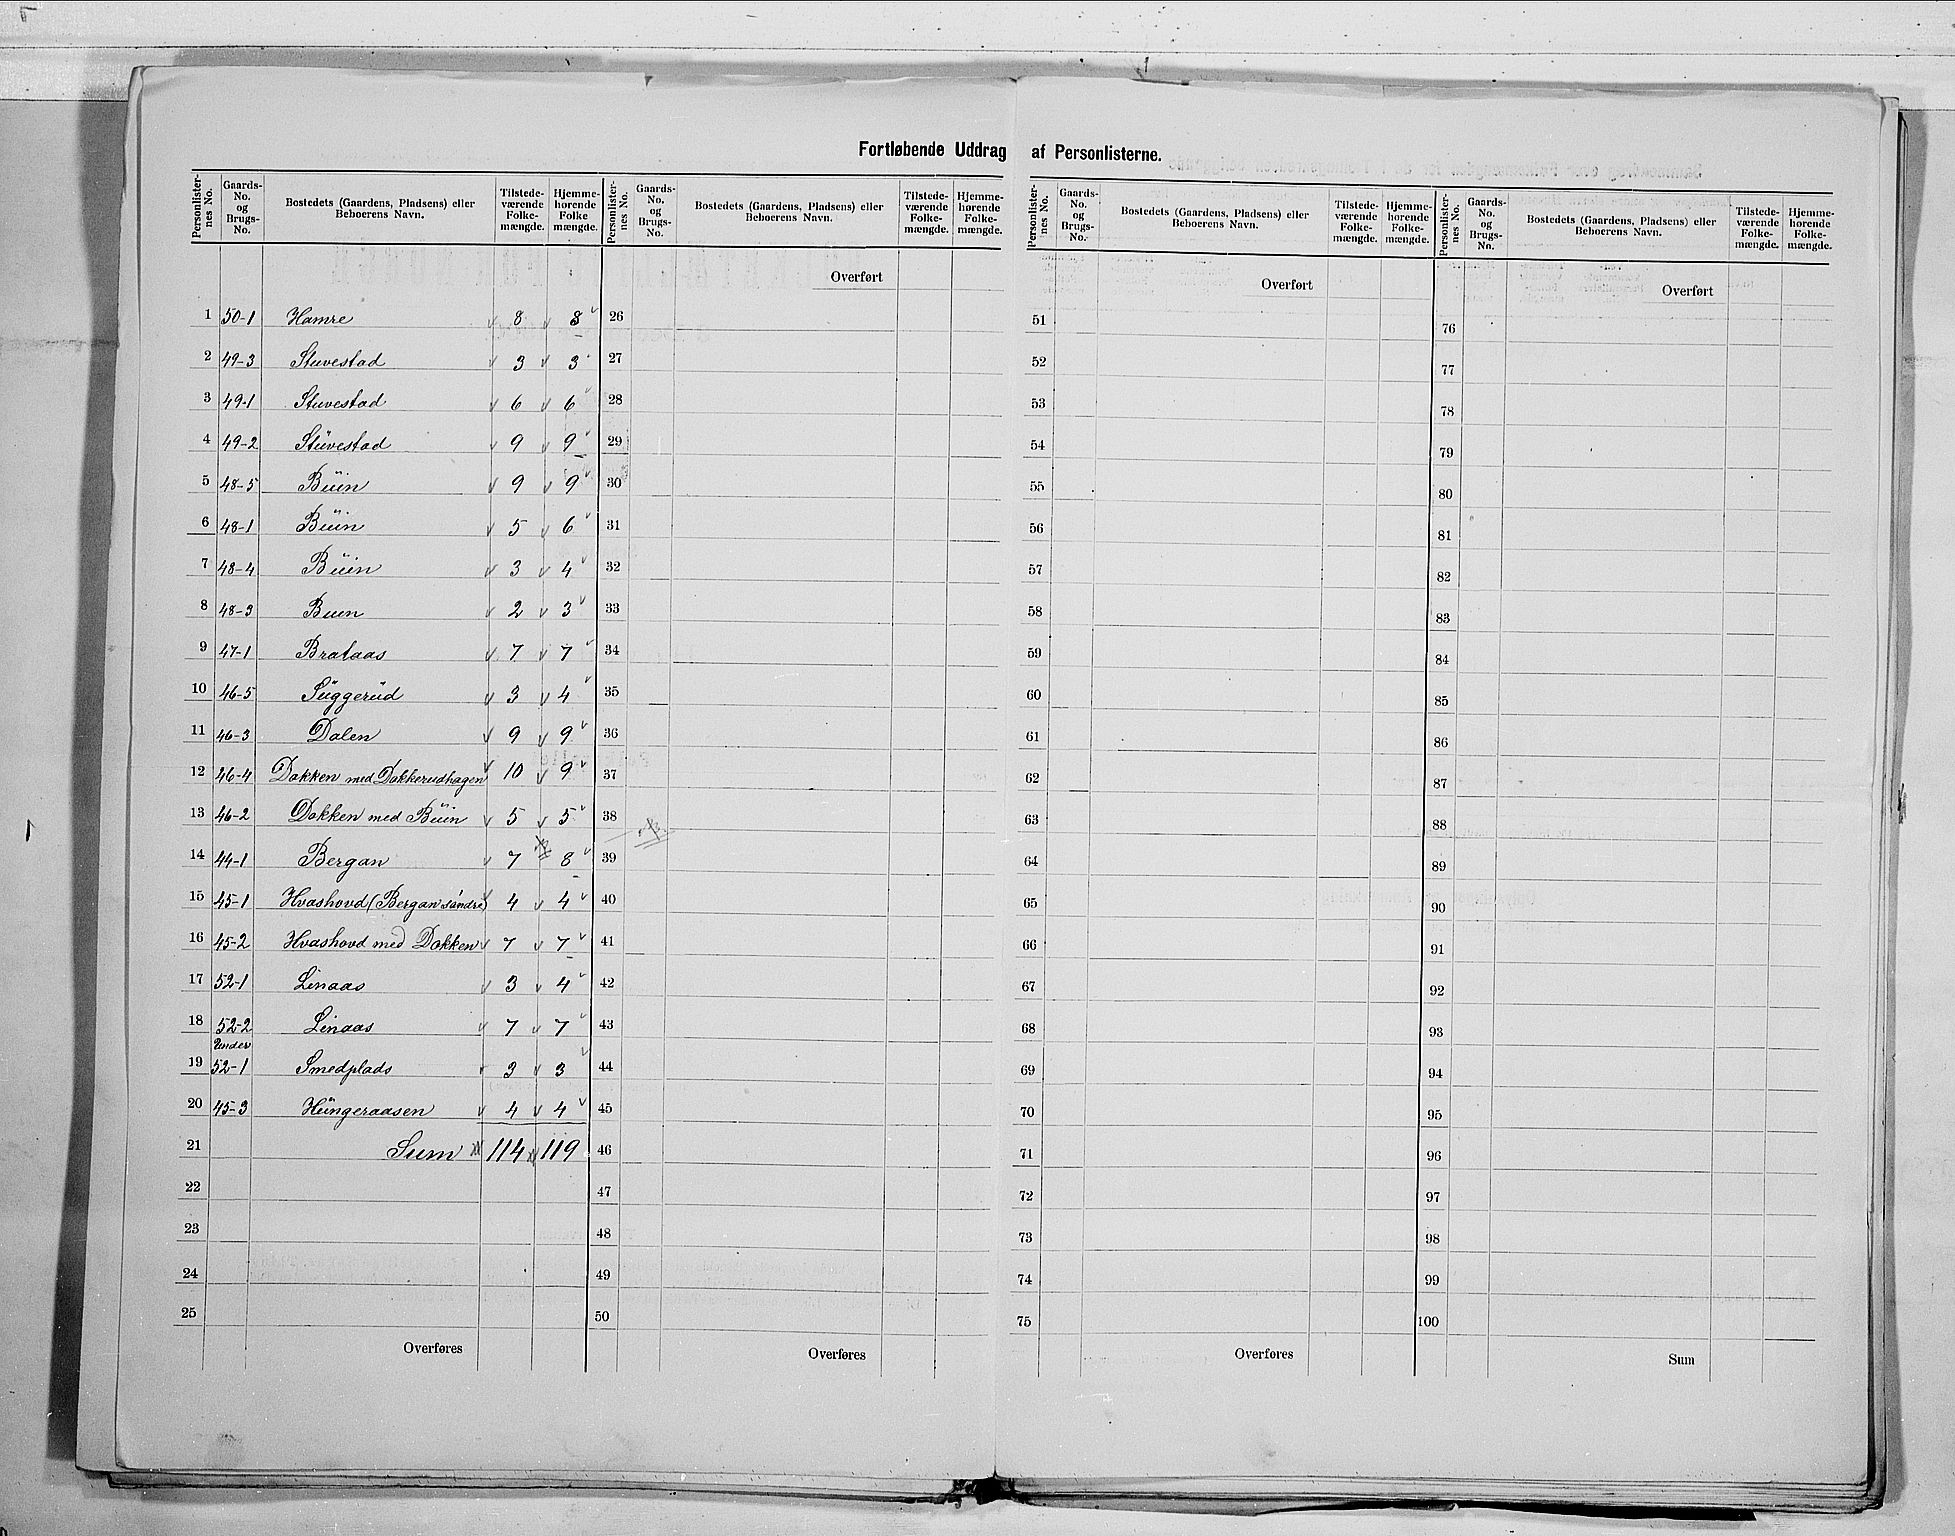 Fortløbende Uddrag af Personlisterne.
Personlister-nes No. Gaards-No. og Brugs-No. Bostedets (Gaardens, Pladsens) eller Beboerens Navn. Tilstede-værende Folke-mængde. Hjemme-hørende Folke mængde.
Personlister-nes No. Gaards-No. og Brugs-No. Bostedets (Gaardens, Pladsens) eller Beboerens Navn. Tilstede-værende Folke-mængde. Hjemme-hørende Folke-mængde.
Personlister-nes No. Gaards-No. og Brugs-No. Bostedets (Gaardens, Pladsens) eller Beboerens Navn. Tilstede-værende Folke-mængde. Hjemme-hørende Folke-mængde.
Personlister-nes No. Gaards-No. og Brugs-No. Bostedets (Gaardens, Pladsens) eller Beboerens Navn. Tilstede-værende Folke-mængde. Hjemme-hørende Folke-mængde.
Overført Overført Overført
1 50-1 Hamre 8 8 26 51 76
2 49-3 Stuvestad 3 3 27 52 77
3 49-1 Stuvestad 6 6 28 53 78
4 49-2 Stüvestad 9 9 29 54 79
5 48-5 Büin 9 9 30 55 80
6 48-1 Büin 5 6 31 56 81
7 48-4 Büin 3 4 32 57 82
8 48-3 Buin 2 3 33 58 83
9 47-1 Brataas 7 7 34 59 84
10 46-5 Süggerüd 3 4 35 60 85
11 46-3 Dalen 9 9 36 61 86
12 46-4 Dokken med Dokkerudhagen 10 9 37 62 87
13 46-2 Dokken med Büin 5 5 38 63 88
14 44-1 Bergan 7 8 39 64 89
15 45-1 Hvashovd (Bergan söndre) 4 4 40 65 90
16 45-2 Hvashovd med Dokken 7 7 41 66 91
17 52-1 Linaas 3 4 42 67 92
18 52-2 Linaas 7 7 43 68 93
Under
19 52-1 Smedplads 3 3 44 69 94
20 45-3 Hüngeraasen 4 4 45 70 95
21 Sum 114 119 46 71 96
22 47 72 97
23 48 73 98
24 49 74 99
25 50 75 100
Overføres Overføres Overføres Sum